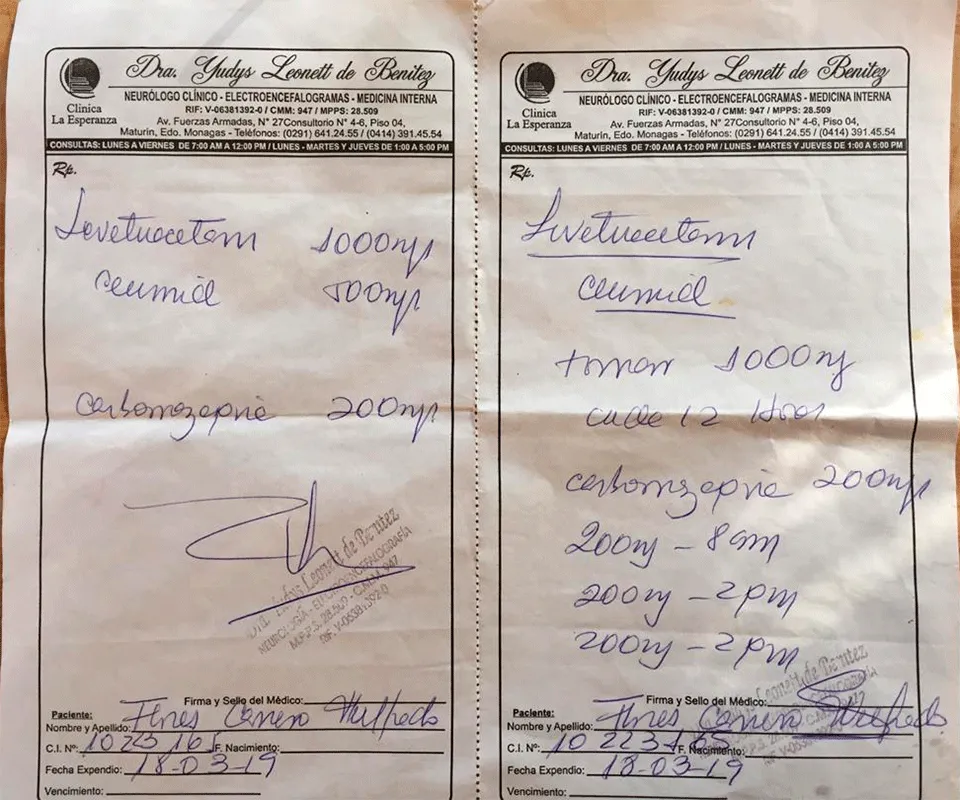 Clinica
La Esperanza
Dra. Yudys Leonett de Benitez
NEURÓLOGO CLÍNICO - ELECTROENCEFALOGRAMAS - MEDICINA INTERNA
RIF: V-06381392-0 / CMM: 947 / MPPS: 28.509
Av. Fuerzas Armadas, N° 27Consultorio N° 4-6, Piso 04,
Maturin, Edo. Monagas - Teléfonos: (0291) 641.24.55 / (0414) 391.45.54
CONSULTAS: LUNES A VIERNES DE 7:00 AM A 12:00 PM / LUNES - MARTES Y JUEVES DE 1:00 A 5:00 PM
Rp.
Levetiracetam 1000mg
ceumid 500mg
carbamazepina 200mg
Dra. Yudys Leonett de Benitez
NEUROLOGÍA - ELECTROENCEFALOGRAFÍA
M.P.P.S. 28.509 - C.M.M. 947
RIF. V-06381392-0
Firma y Sello del Médico:
Paciente:
Nombre y Apellido: Flores Carrero Wilfredo
C.I. N°: F. Nacimiento:
Fecha Expendio: 18-03-19
Vencimiento:
Clinica
La Esperanza
Dra. Yudys Leonett de Benitez
NEURÓLOGO CLÍNICO - ELECTROENCEFALOGRAMAS - MEDICINA INTERNA
RIF: V-06381392-0 / CMM: 947 / MPPS: 28.509
Av. Fuerzas Armadas, N° 27Consultorio N° 4-6, Piso 04,
Maturin, Edo. Monagas - Teléfonos: (0291) 641.24.55 / (0414) 391.45.54
CONSULTAS: LUNES A VIERNES DE 7:00 AM A 12:00 PM / LUNES - MARTES Y JUEVES DE 1:00 A 5:00 PM
Rp.
Levetiracetam
ceumid
tomar 1000mg
cada 12 Horas
carbamazepina 200mg
200mg - 8am
200mg - 2pm
200mg - 2pm
Leonett de Benitez
Firma y Sello del Médico:
Paciente:
Nombre y Apellido: Flores Carrero Wilfredo
C.I. N°: F. Nacimiento:
Fecha Expendio: 18-03-19
Vencimiento: